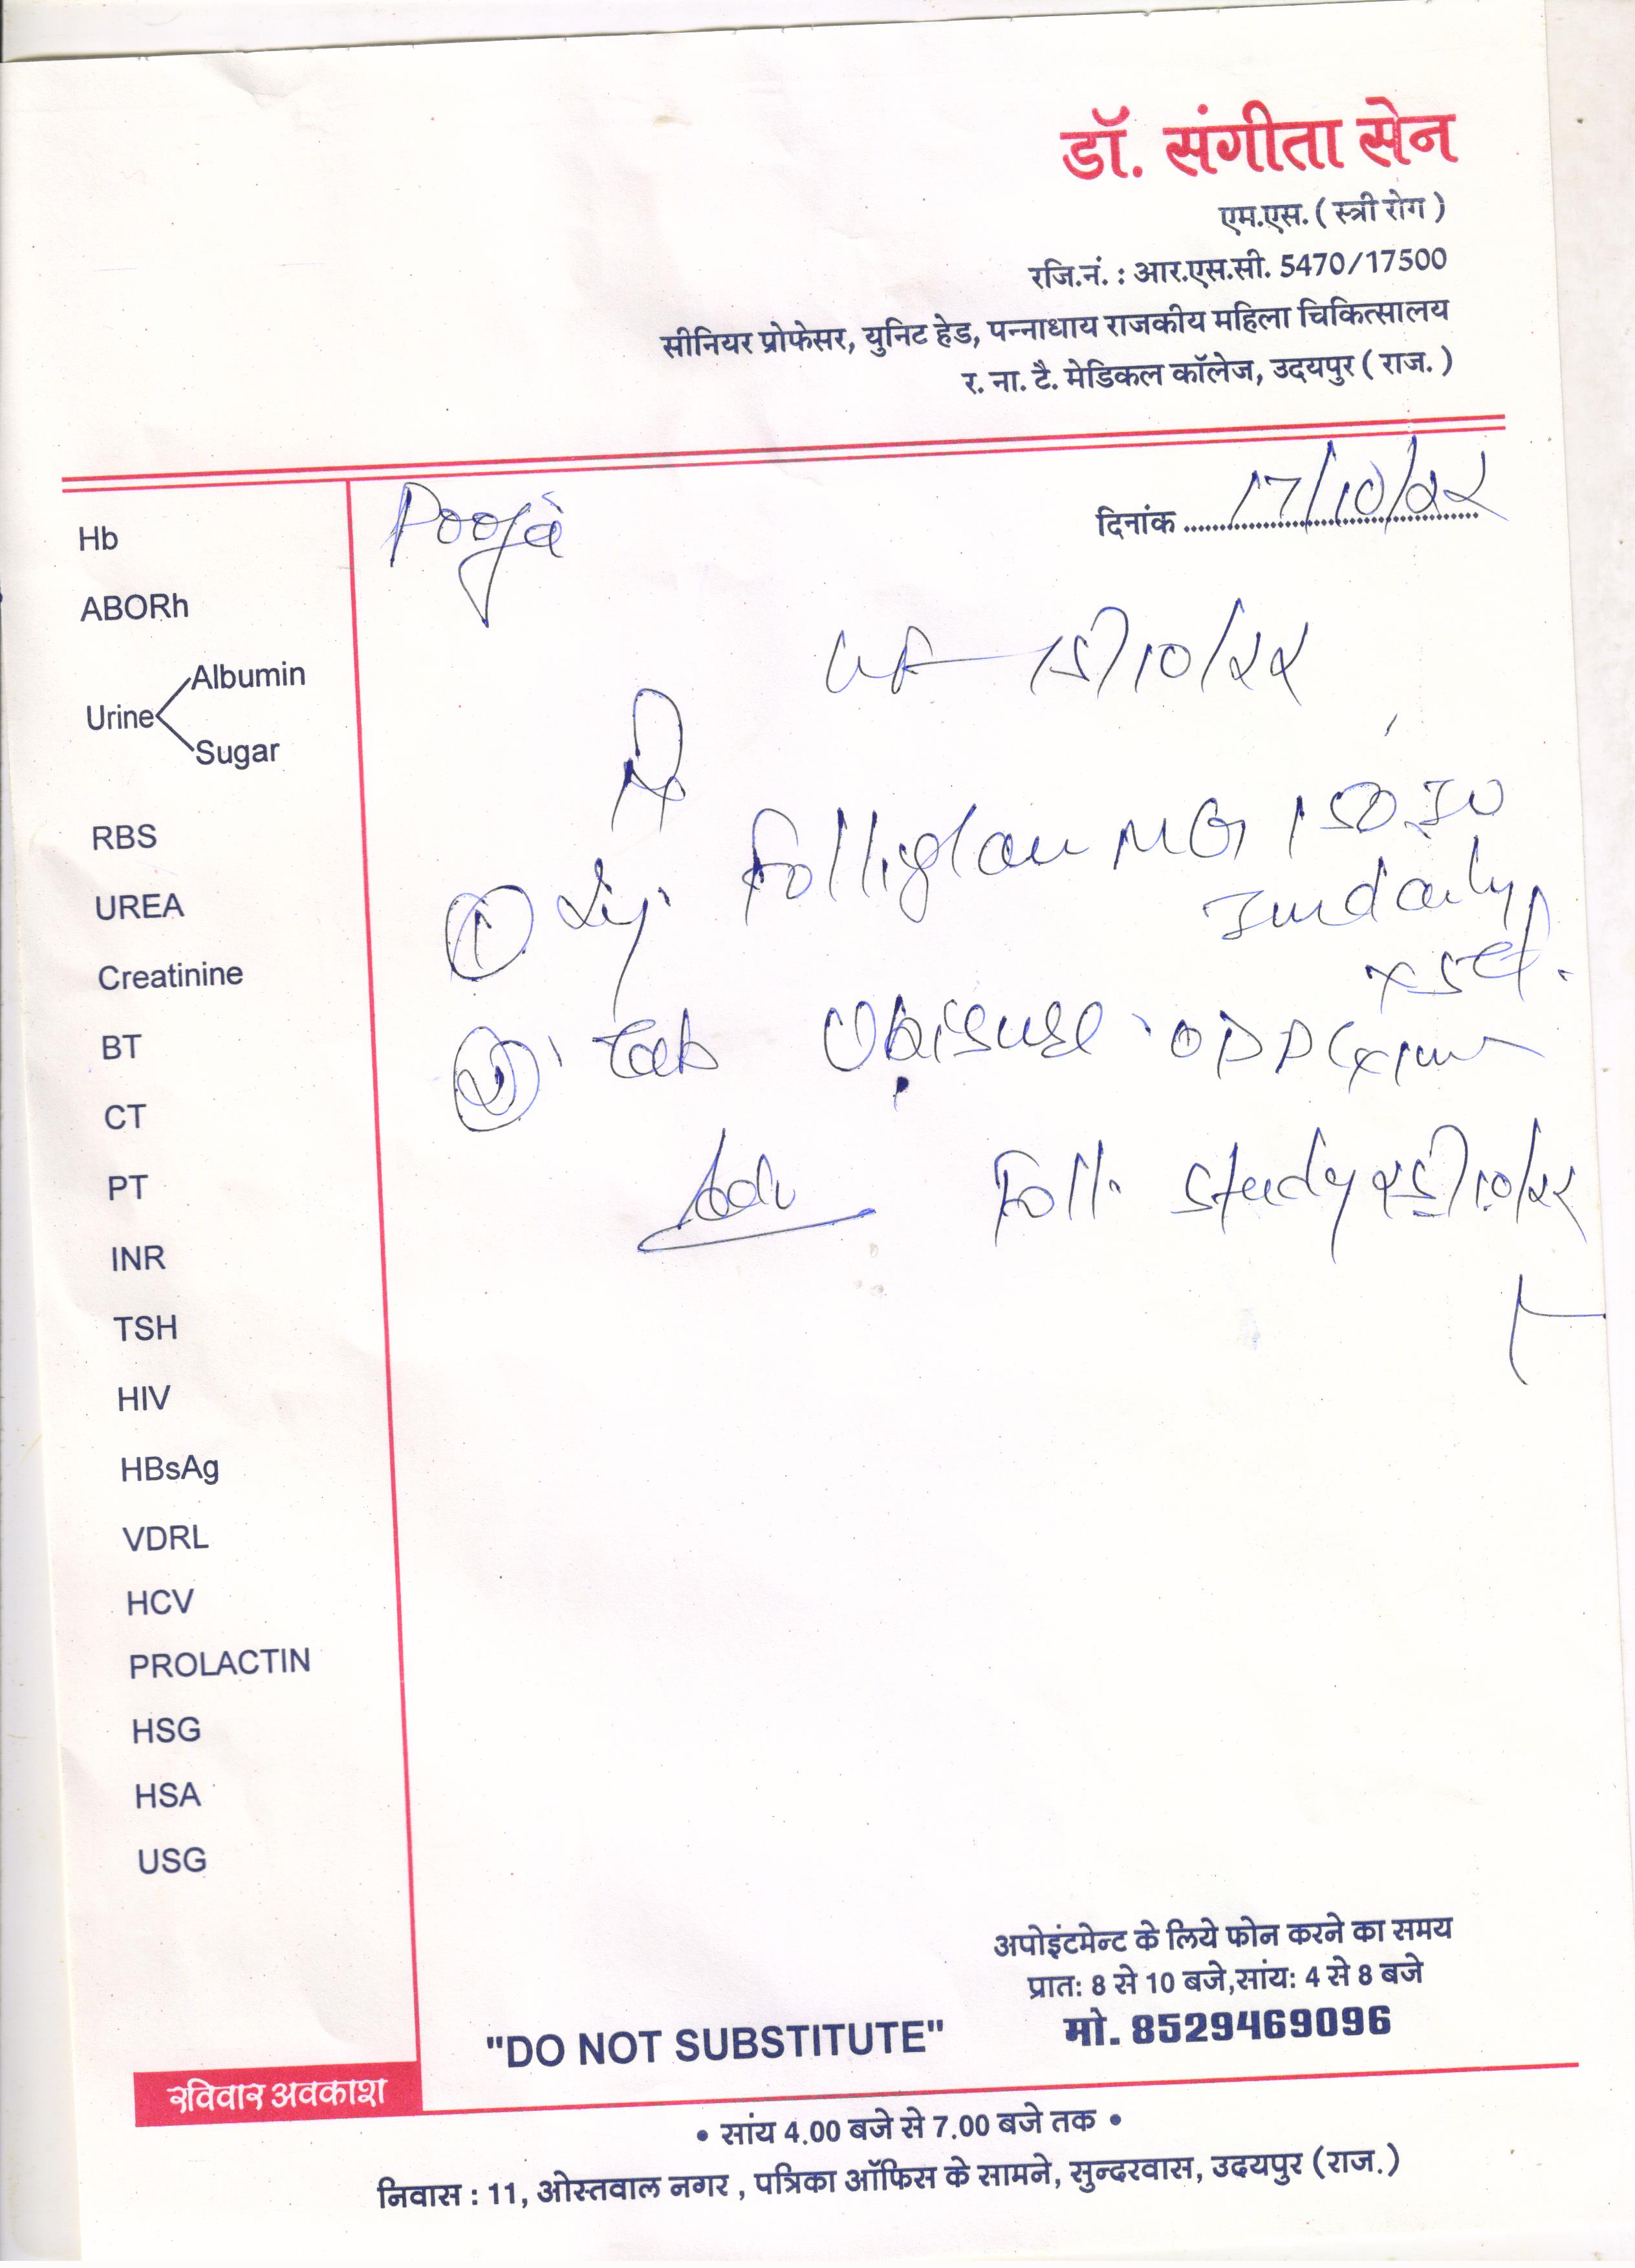 डॉ. संगीता सेन
एम.एस. ( स्त्री रोग )
रजि.नं. : आर.एस.सी. 5470/17500
सीनियर प्रोफेसर, युनिट हेड, पन्नाधाय राजकीय महिला चिकित्सालय
र. ना. टै. मेडिकल कॉलेज, उदयपुर ( राज. )
Pooja
दिनांक 17/10/22
15/10/22
Hb
ABORh
Urine Albumin
Sugar
RBS
UREA
Creatinine
BT
CT
PT
INR
TSH
HIV
HBsAg
VDRL
HCV
PROLACTIN
HSG
HSA
USG
① Inj. MG 150 IU
daily
② Tab
Adv Foll. study 25/10/22
अपोइंटमेन्ट के लिये फोन करने का समय
प्रात: 8 से 10 बजे,सांय: 4 से 8 बजे
मो. 8529469096
"DO NOT SUBSTITUTE"
रविवार अवकाश
• सांय 4.00 बजे से 7.00 बजे तक •
निवास : 11, ओस्तवाल नगर , पत्रिका ऑफिस के सामने, सुन्दरवास, उदयपुर (राज.)